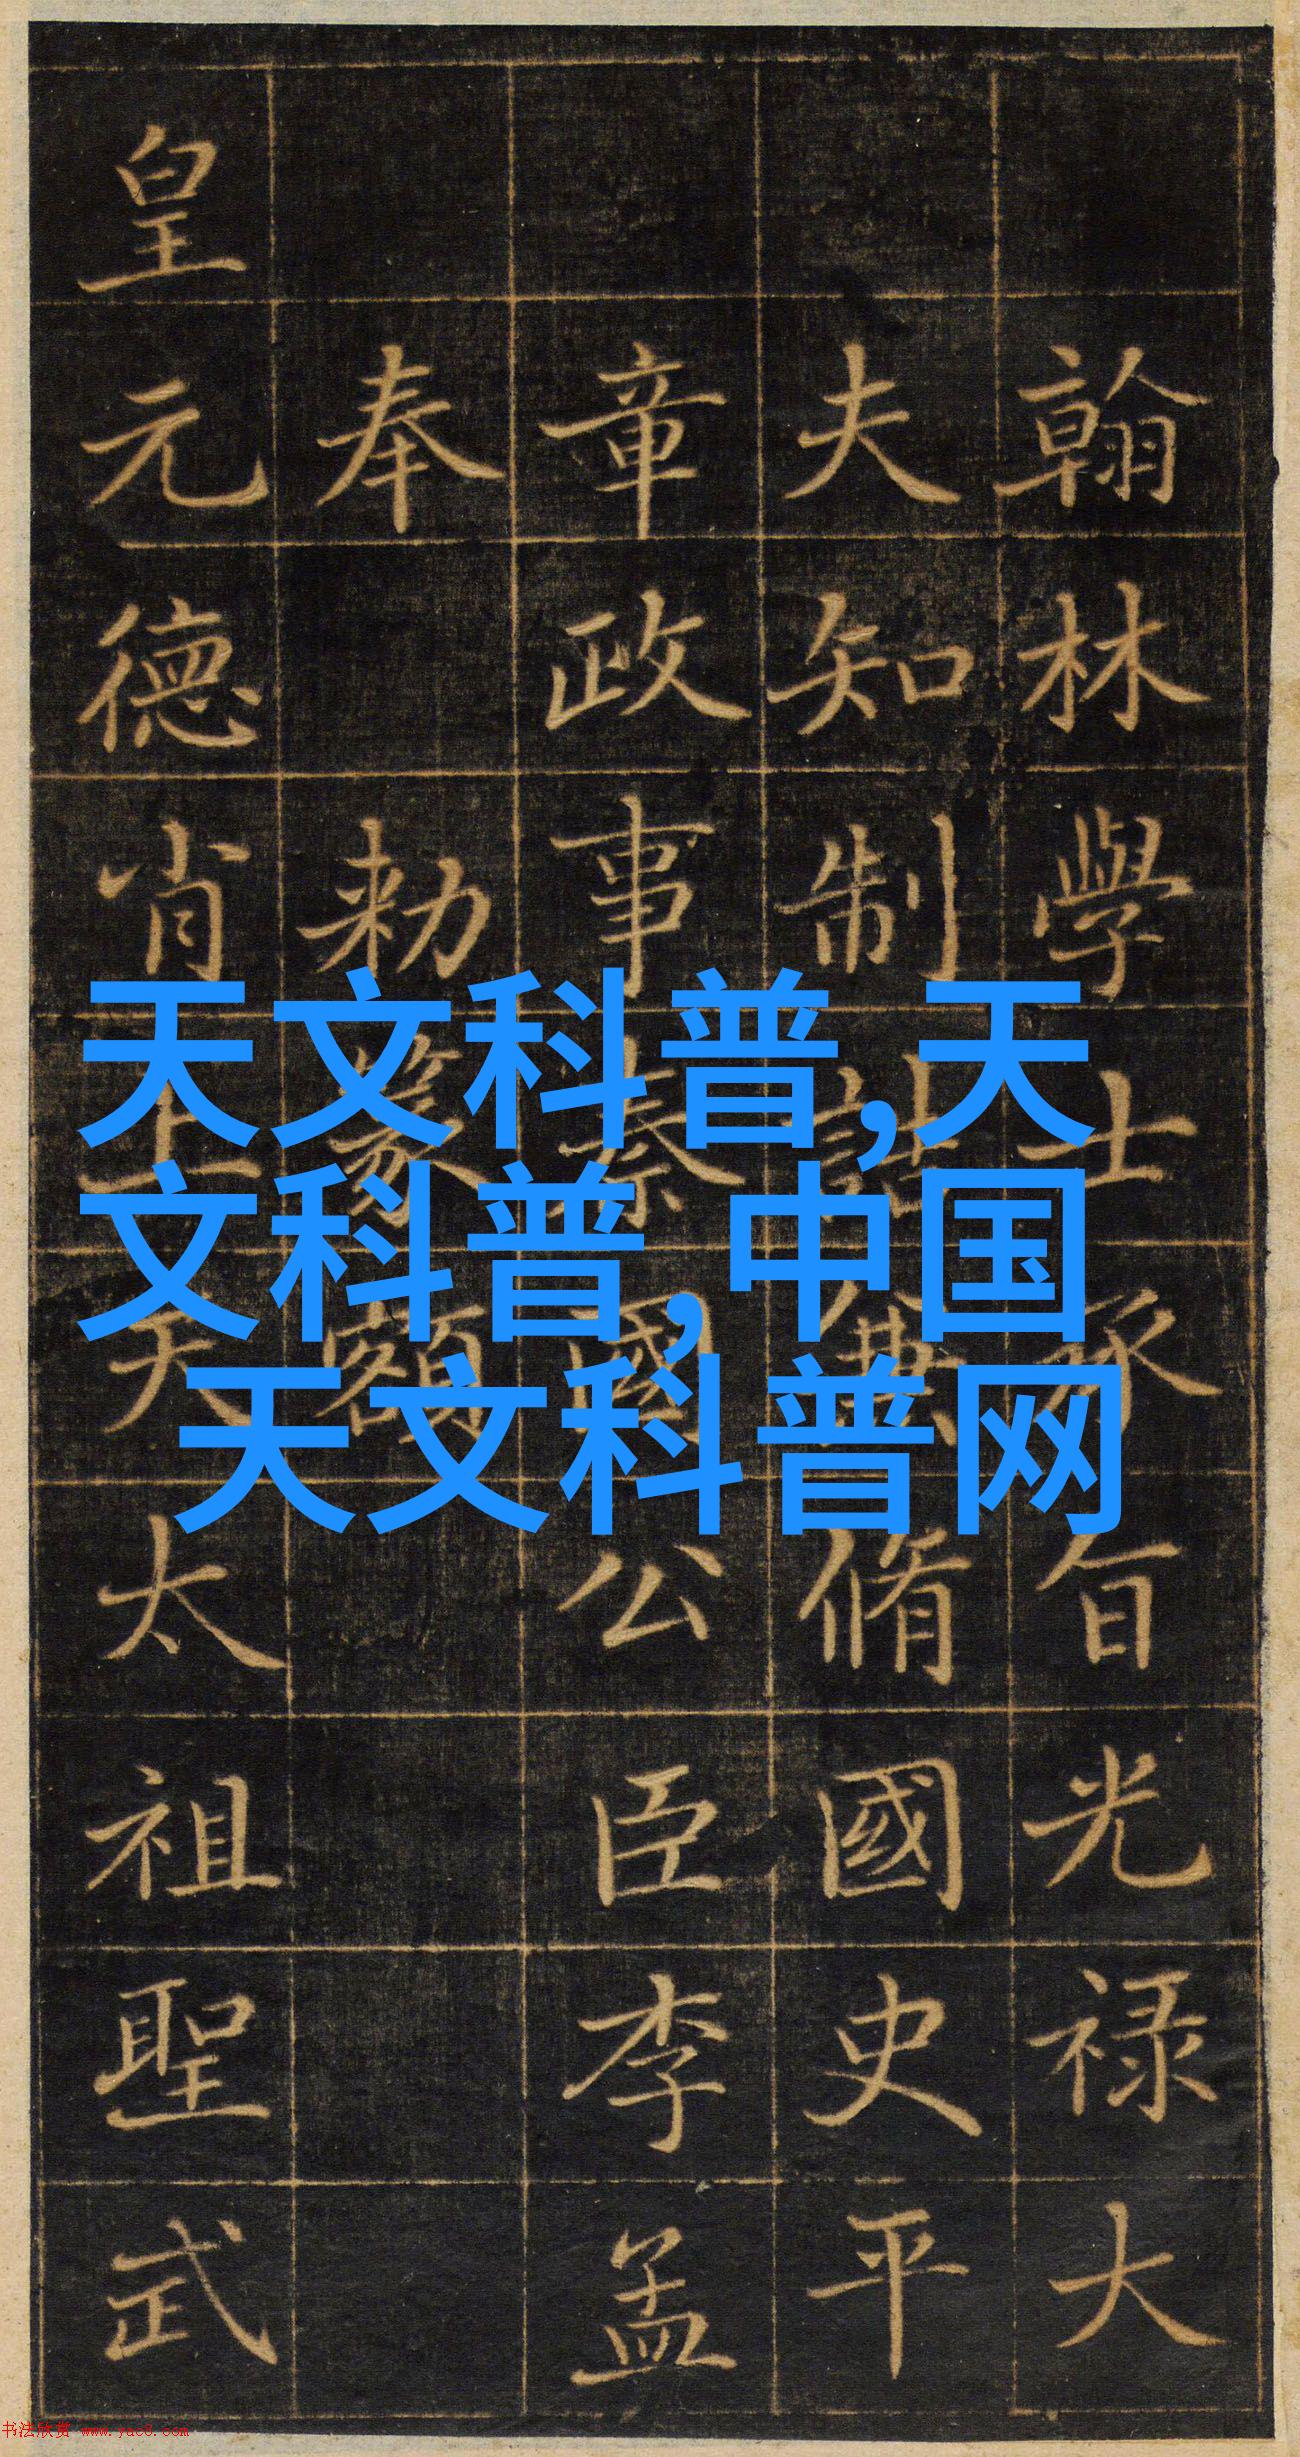 翰林學士承旨光禄大
夫知制誥兼脩國史平
章政事秦國公臣李孟
奉 勑篆額
皇元德肖上天太祖聖武
天文科普,天
文科普,中国
天文科普网
书法欣赏 www.yac8.com